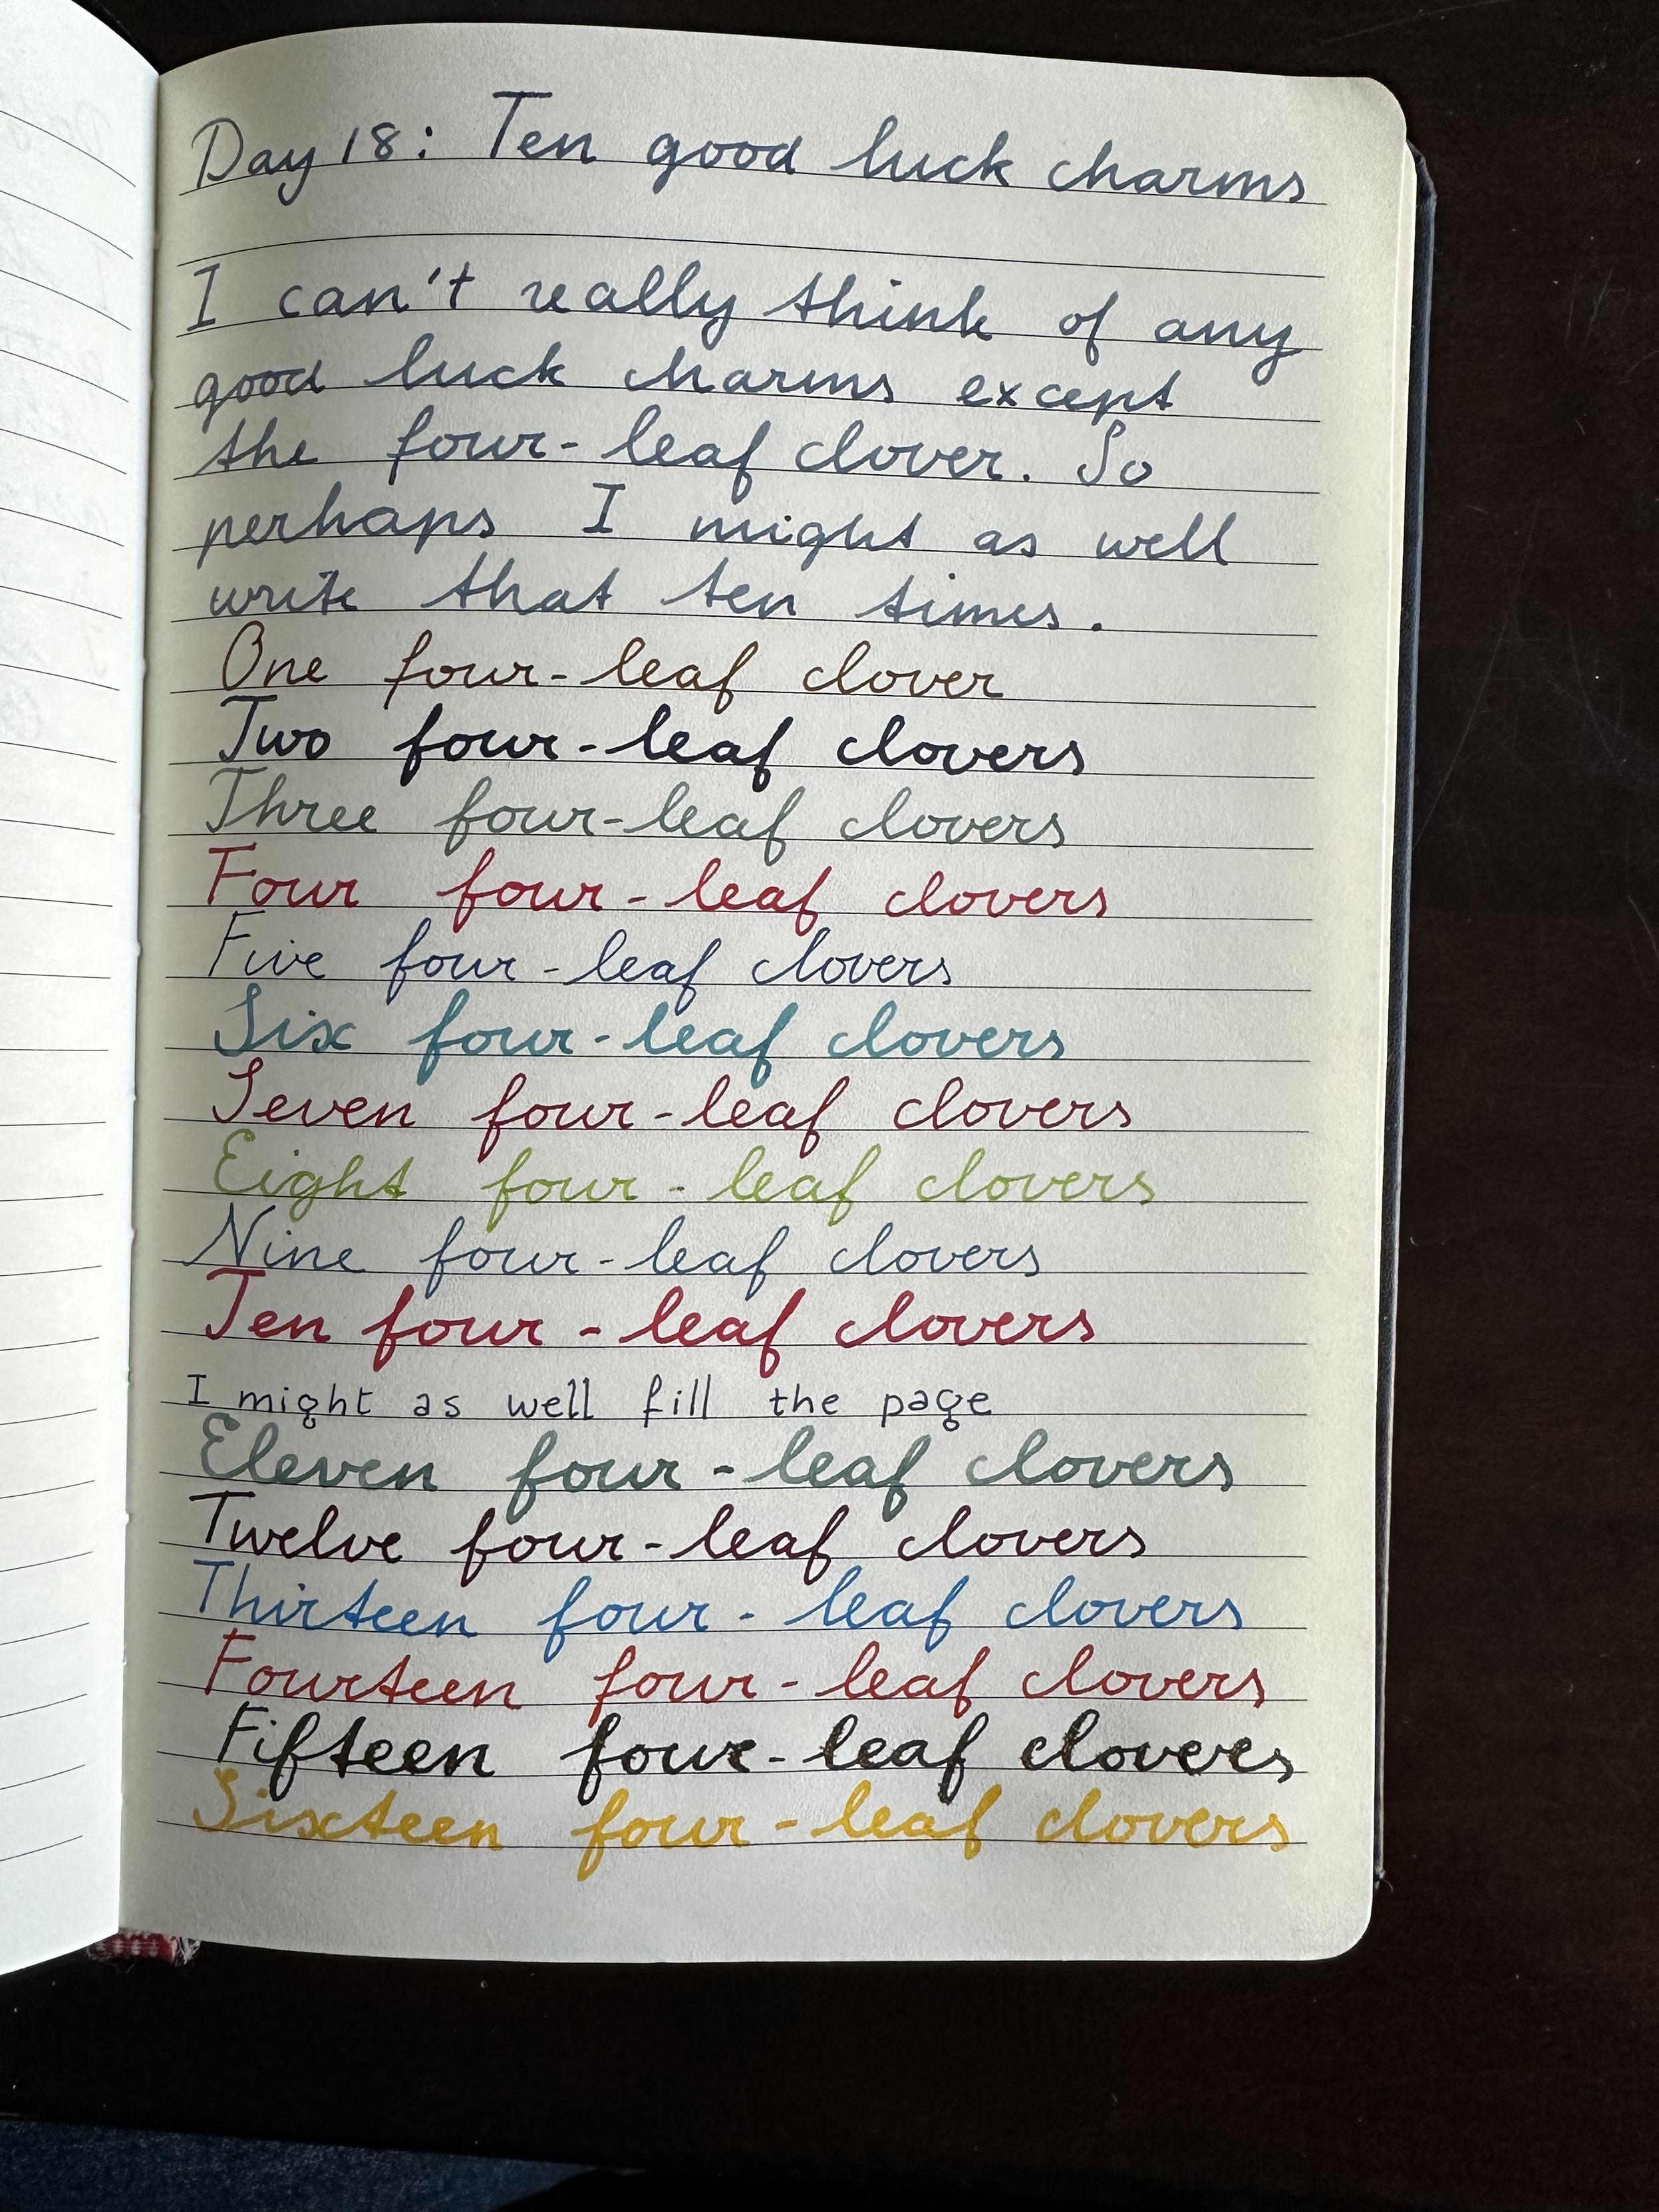 Day 18: Ten good luck charms
I can't really think of any
good luck charms except
the four-leaf clover. So
perhaps I might as well
write that ten times.
One four-leaf clover
Two four-leaf clovers
Three four-leaf clovers
Four four-leaf clovers
Five four-leaf clovers
Six four-leaf clovers
Seven four-leaf clovers
Eight four-leaf clovers
Nine four-leaf clovers
Ten four-leaf clovers
I might as well fill the page
Eleven four-leaf clovers
Twelve four-leaf clovers
Thirteen four-leaf clovers
Fourteen four-leaf clovers
Fifteen four-leaf clovers
Sixteen four-leaf clovers